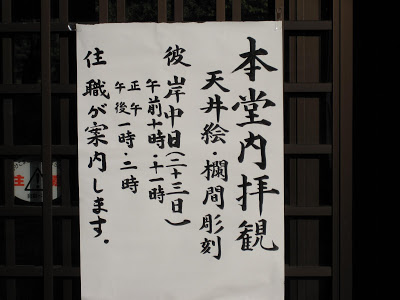 本堂内拝観
天井絵・欄間彫刻
彼岸中日(二十三日)
午前十時・十一時
正午
午後一時・二時
住職が案内します.